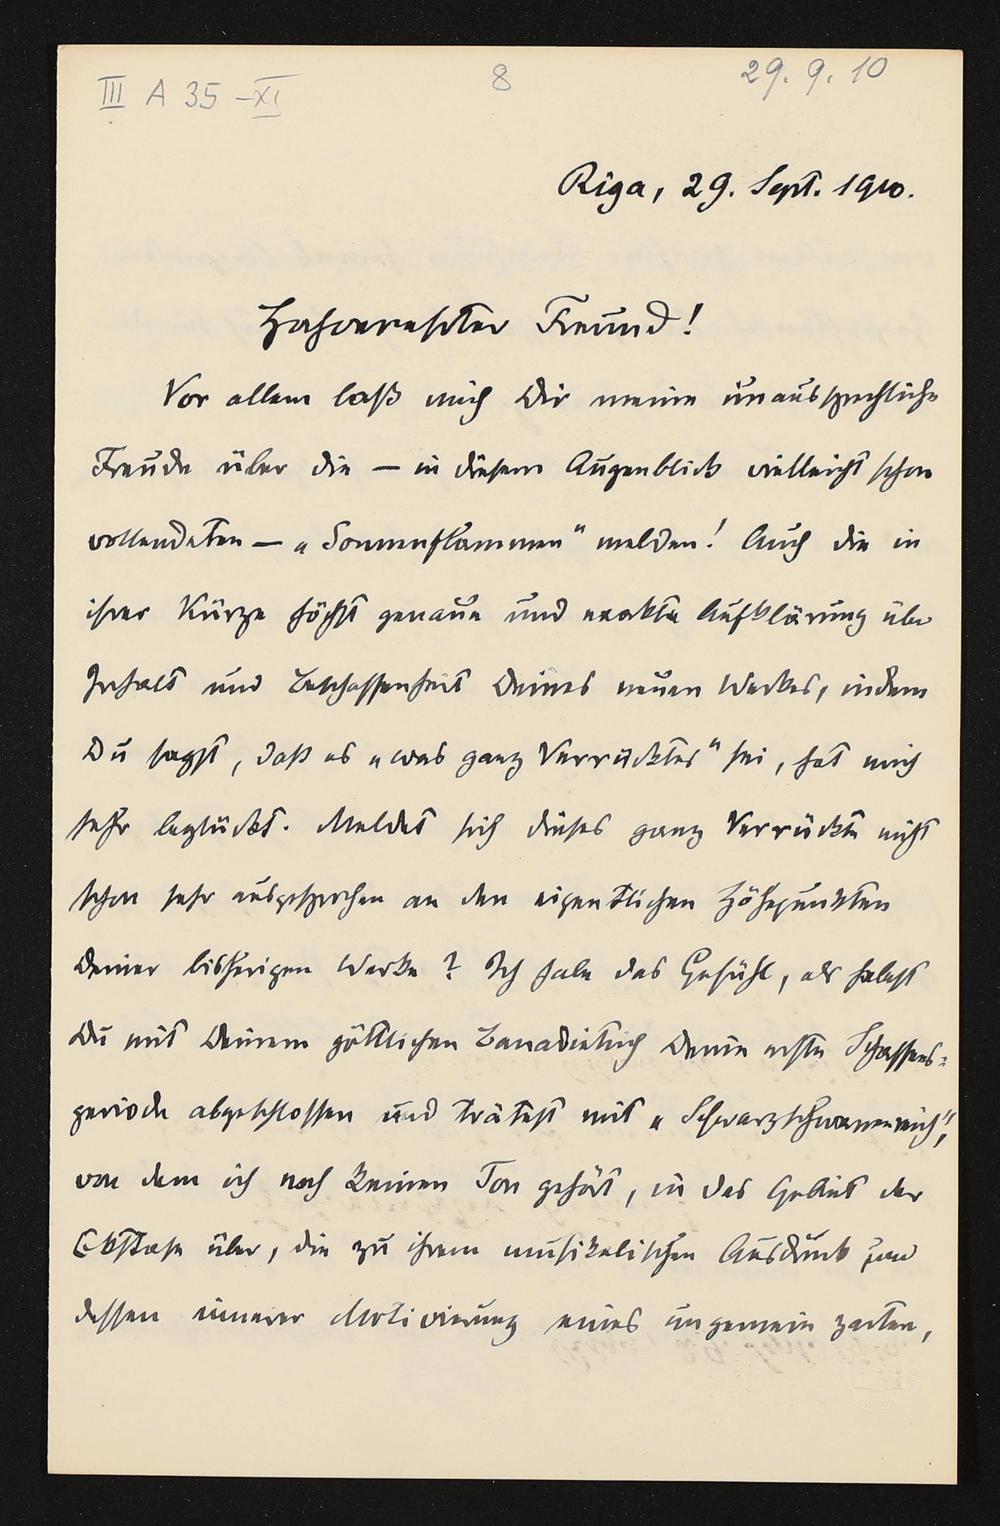 III A 35 -XI
8
29. 9. 10
Riga, 29. Sept. 1910.
Hochverehrter Freund!
Vor allem laß mich Dir meine unaussprechliche
Freude über die — in diesem Augenblick vielleicht schon
vollendeten — „Sonnenflammen" melden! Auch die in
ihrer Kürze höchst genaue und exakte Aufklärung über
Inhalt und Beschaffenheit Deines neuen Werkes, indem
Du sagst, daß es „was ganz Verrücktes" sei, hat mich
sehr beglückt. Meldet sich dieses ganz Verrückte nicht
schon sehr ausgesprochen an den eigentlichen Höhepunkten
Deiner bisherigen Werke? Ich habe das Gefühl, als habest
Du mit Deinem göttlichen Banadietrich Deine erste Schaffens-
periode abgeschlossen und trätest mit „Schwarzschwanenreich",
von dem ich noch keinen Ton gehört, in das Gebiet der
Ekstase über, die zu ihrem musikalischen Ausdruck und
dessen innerer Motivierung eines ungemein zarten,